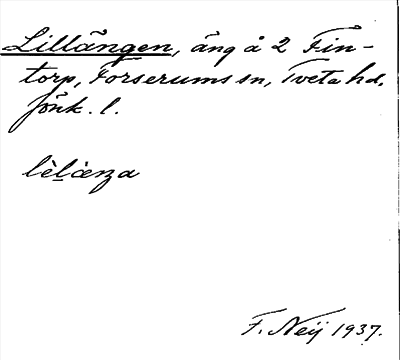 Lillängen, äng å 2 Fin-
torp, Forserums sn, Tveta hd,
Jönk. l.
lèl̠àŋa
F. Neij 1937.